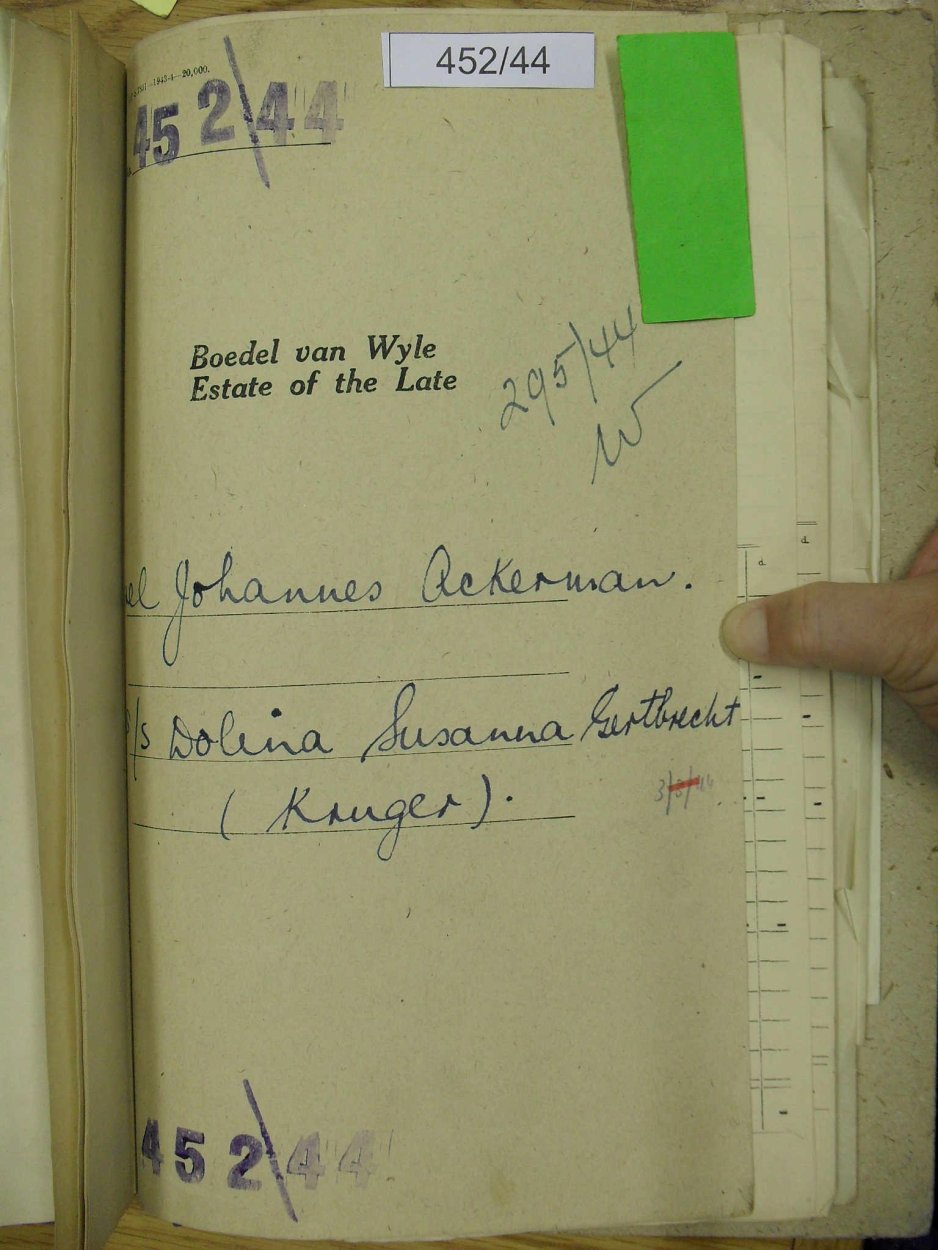 452/44
1943-4—20,000.
452/44
Boedel van Wyle
Estate of the Late
295/44
el Johannes Ackerman.
s/s Dolina Susanna Gertbrecht
(Kruger).
d.
d.
452/44